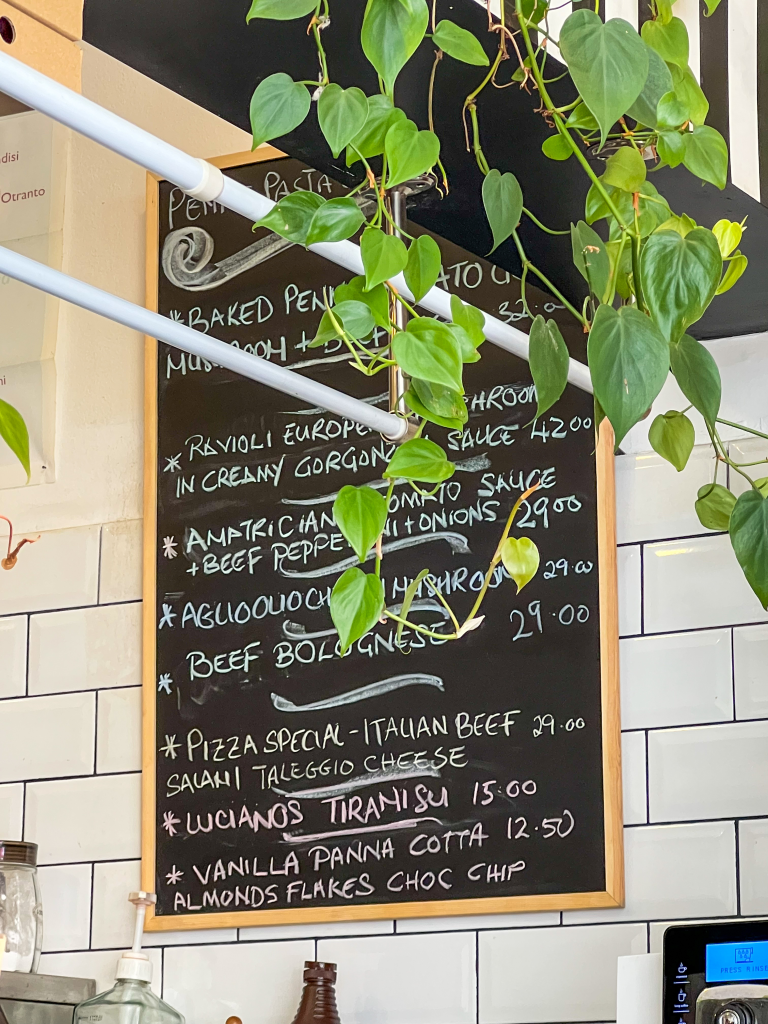 disi
Otranto
PENNE PASTA
*BAKED
MUSHROOM +
*RAVIOLI
IN CREAMY SAUCE 42.00
*AMATRICIAN TOMATO SAUCE
+BEEF +ONIONS 29.00
*AGLIOOLIO MUSHROOM 29.00
*BEEF BOLOGNESE 29.00
*PIZZA SPECIAL-ITALIAN BEEF 29.00
SALAMI TALEGGIO CHEESE
*LUCIANOS TIRAMISU 15.00
*VANILLA PANNA COTTA 12.50
ALMONDS FLAKES CHOC CHIP
PRESS RINSE